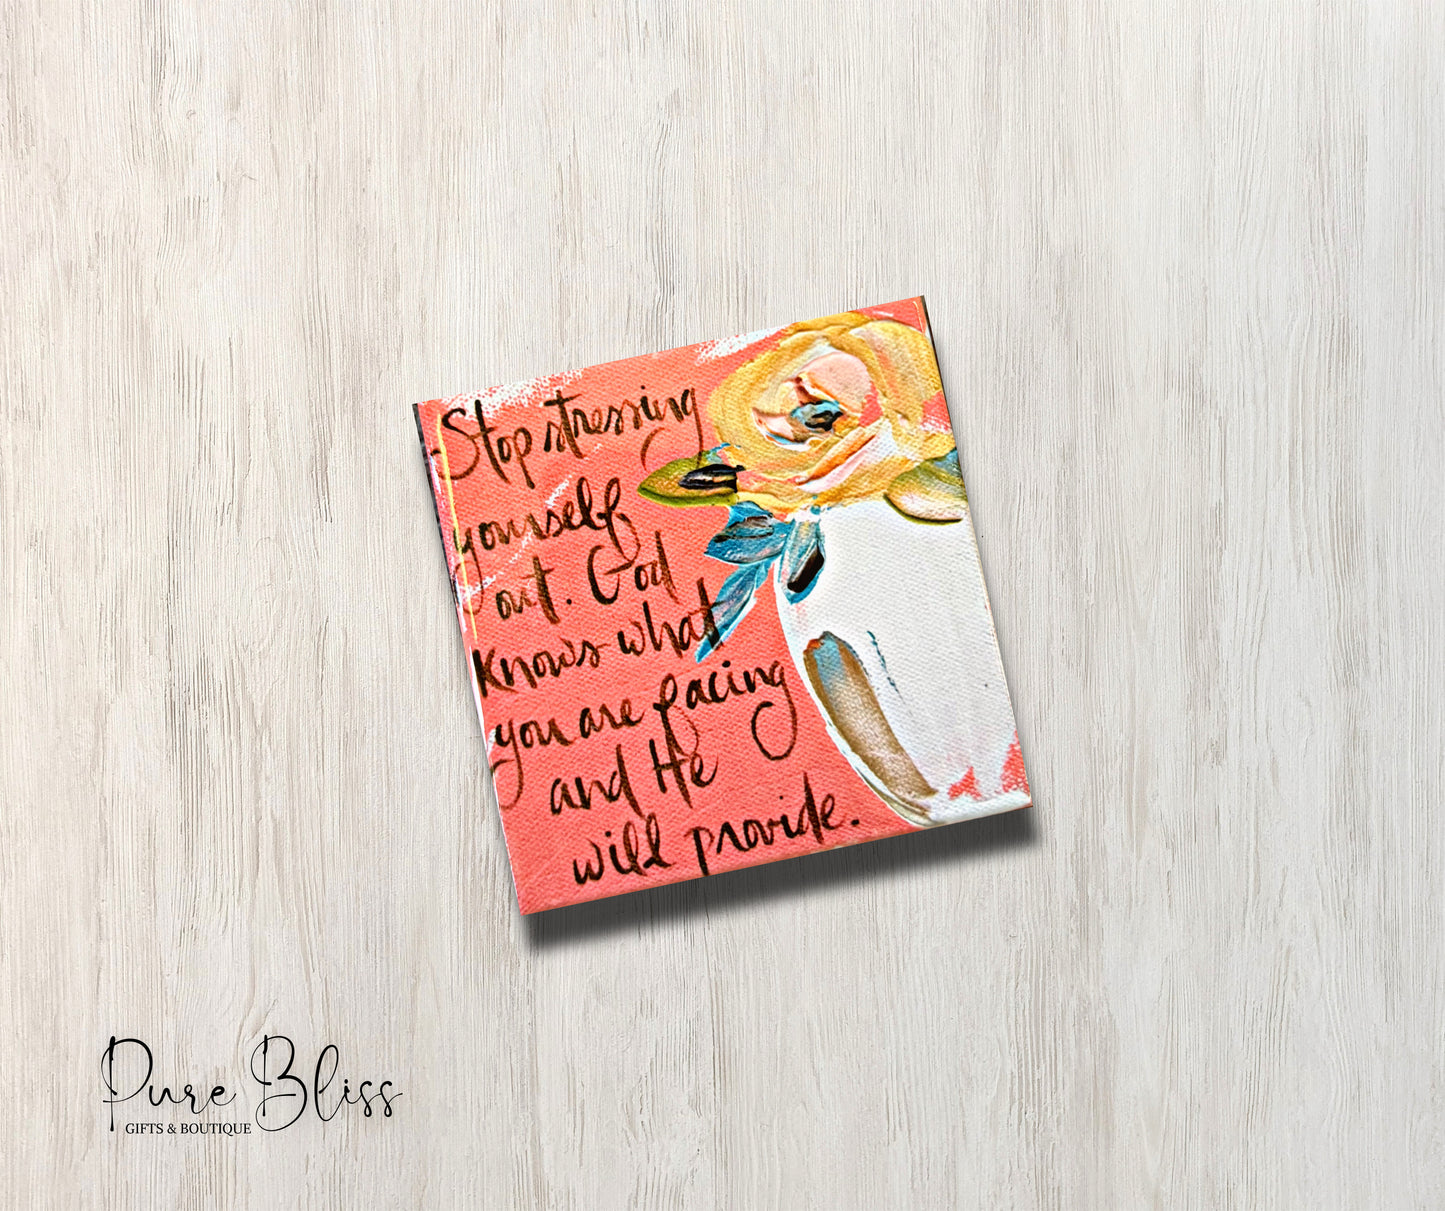 Stop stressing
yourself
out. God
knows what
you are facing
and He
will provide.
Pure Bliss
GIFTS & BOUTIQUE